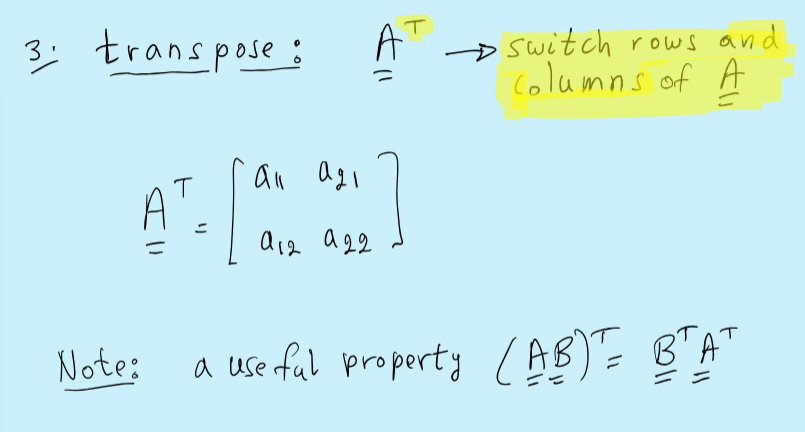 3. transpose: A^T → switch rows and
columns of A
A^T = [ a11 a21
a12 a22 ]
Note: a useful property (AB)^T = B^T A^T